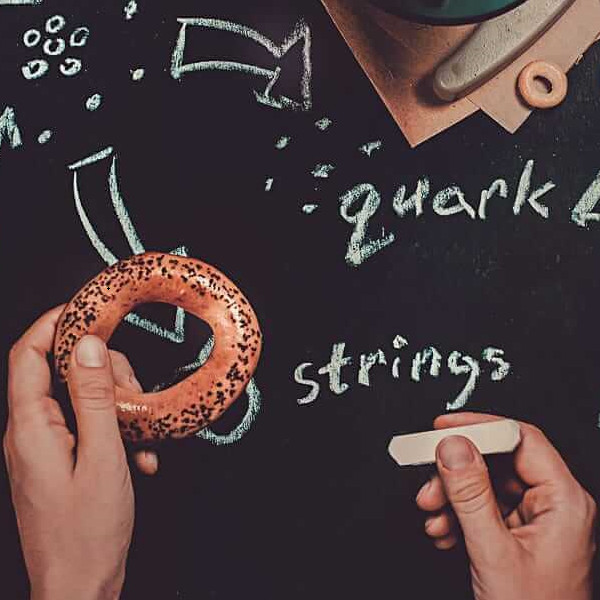 quark
strings